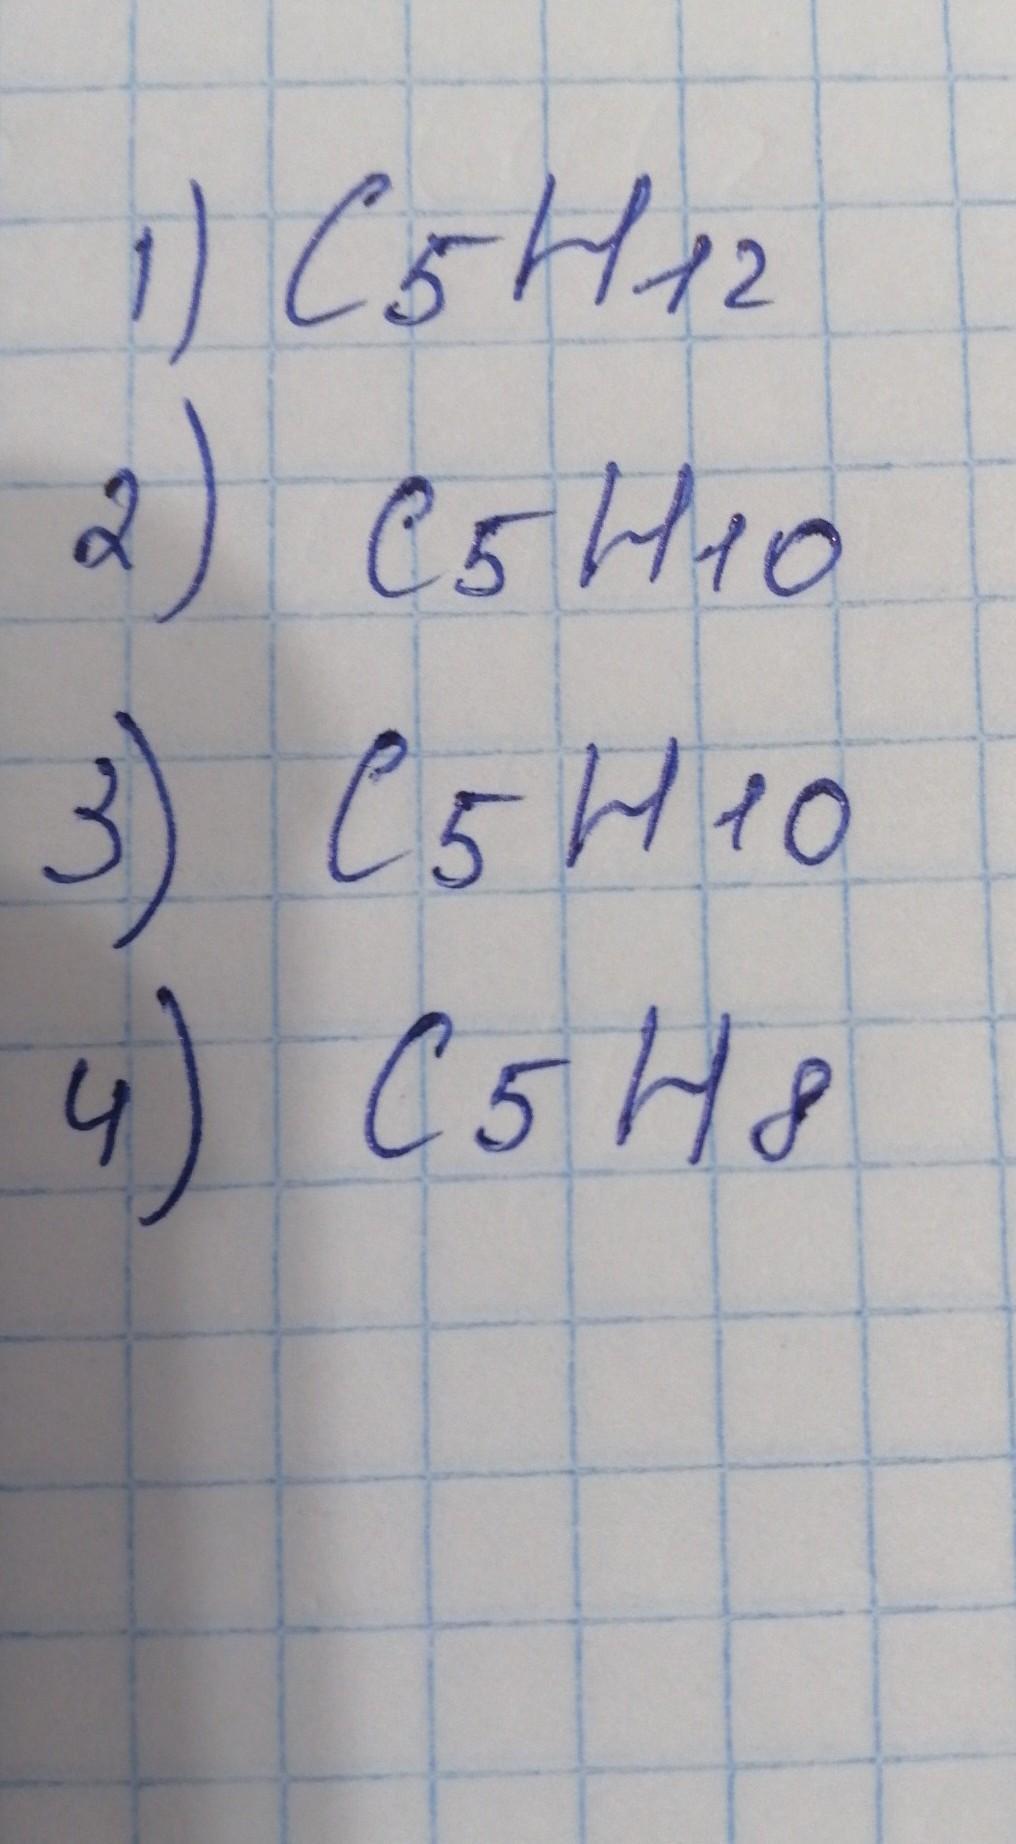 1) C5H12
2) C5H10
3) C5H10
4) C5H8